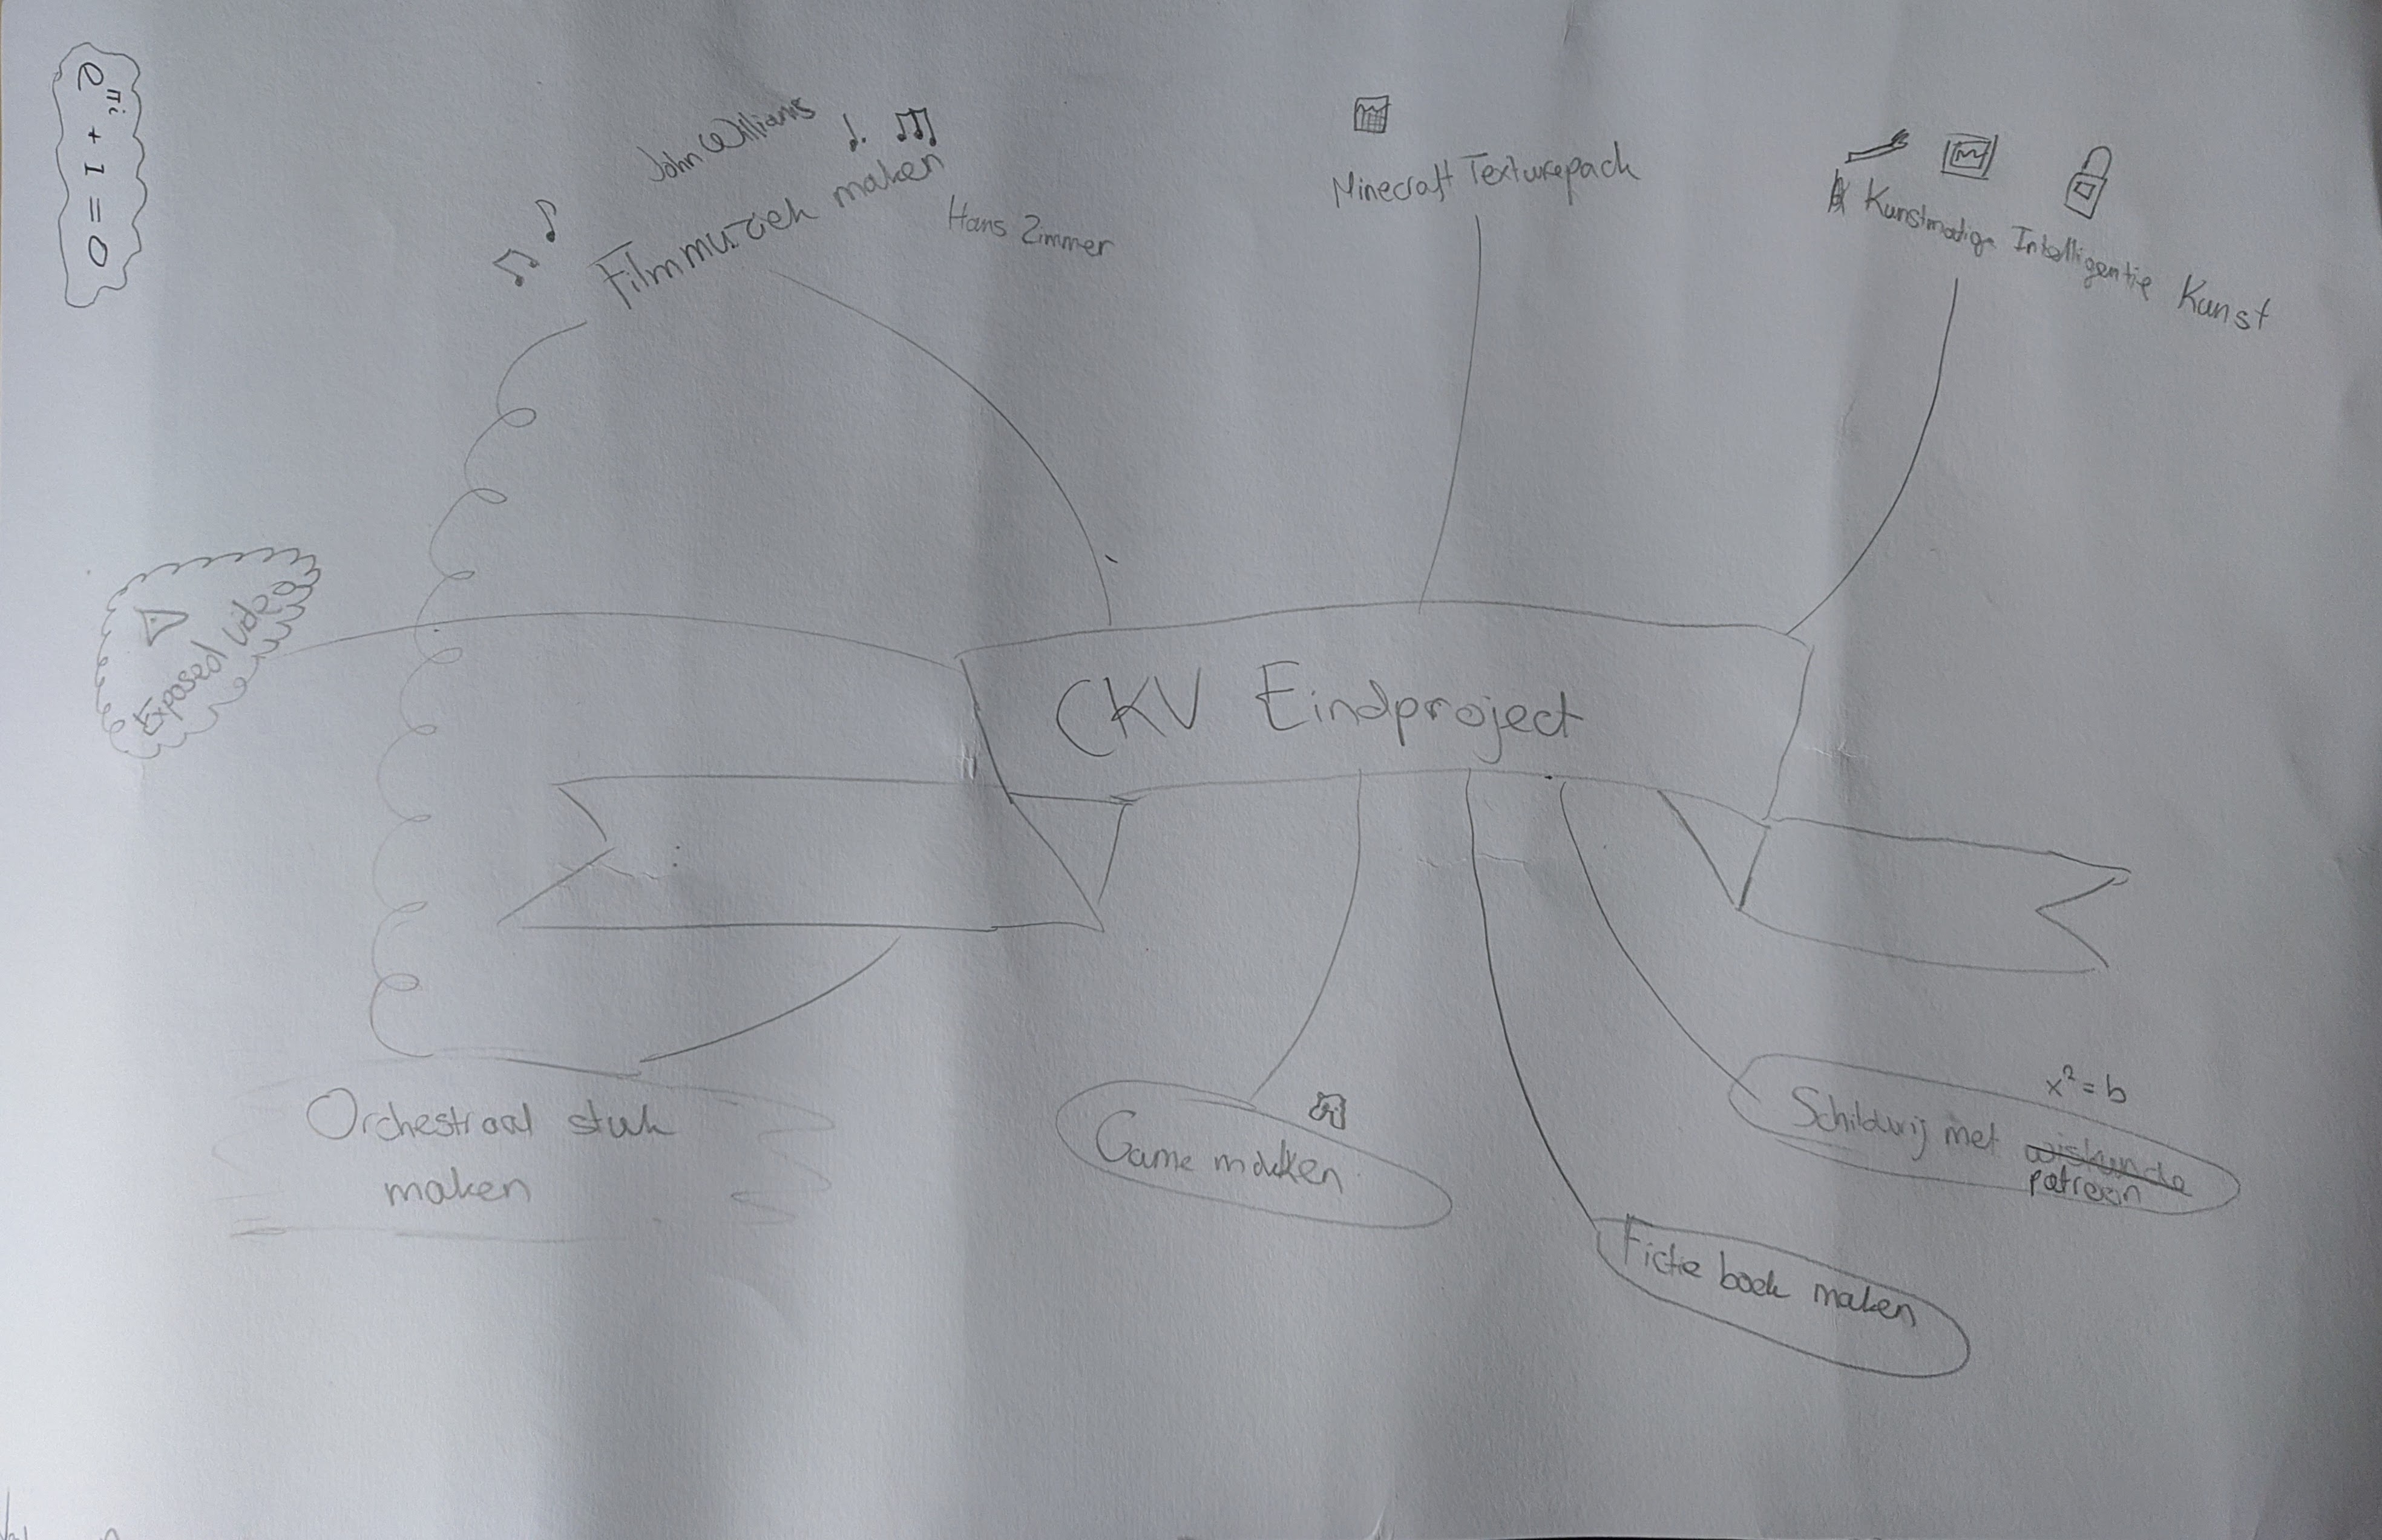 e^πi + 1 = 0
John Williams
Filmmuziek maken
Hans Zimmer
Minecraft Texturepack
Kunstmatige Intelligentie Kunst
Exposed video
CKV Eindproject
Orchestraal stuk
maken
Game maken
Fictie boek maken
x² = b
Schildrij met wiskunde
patroon